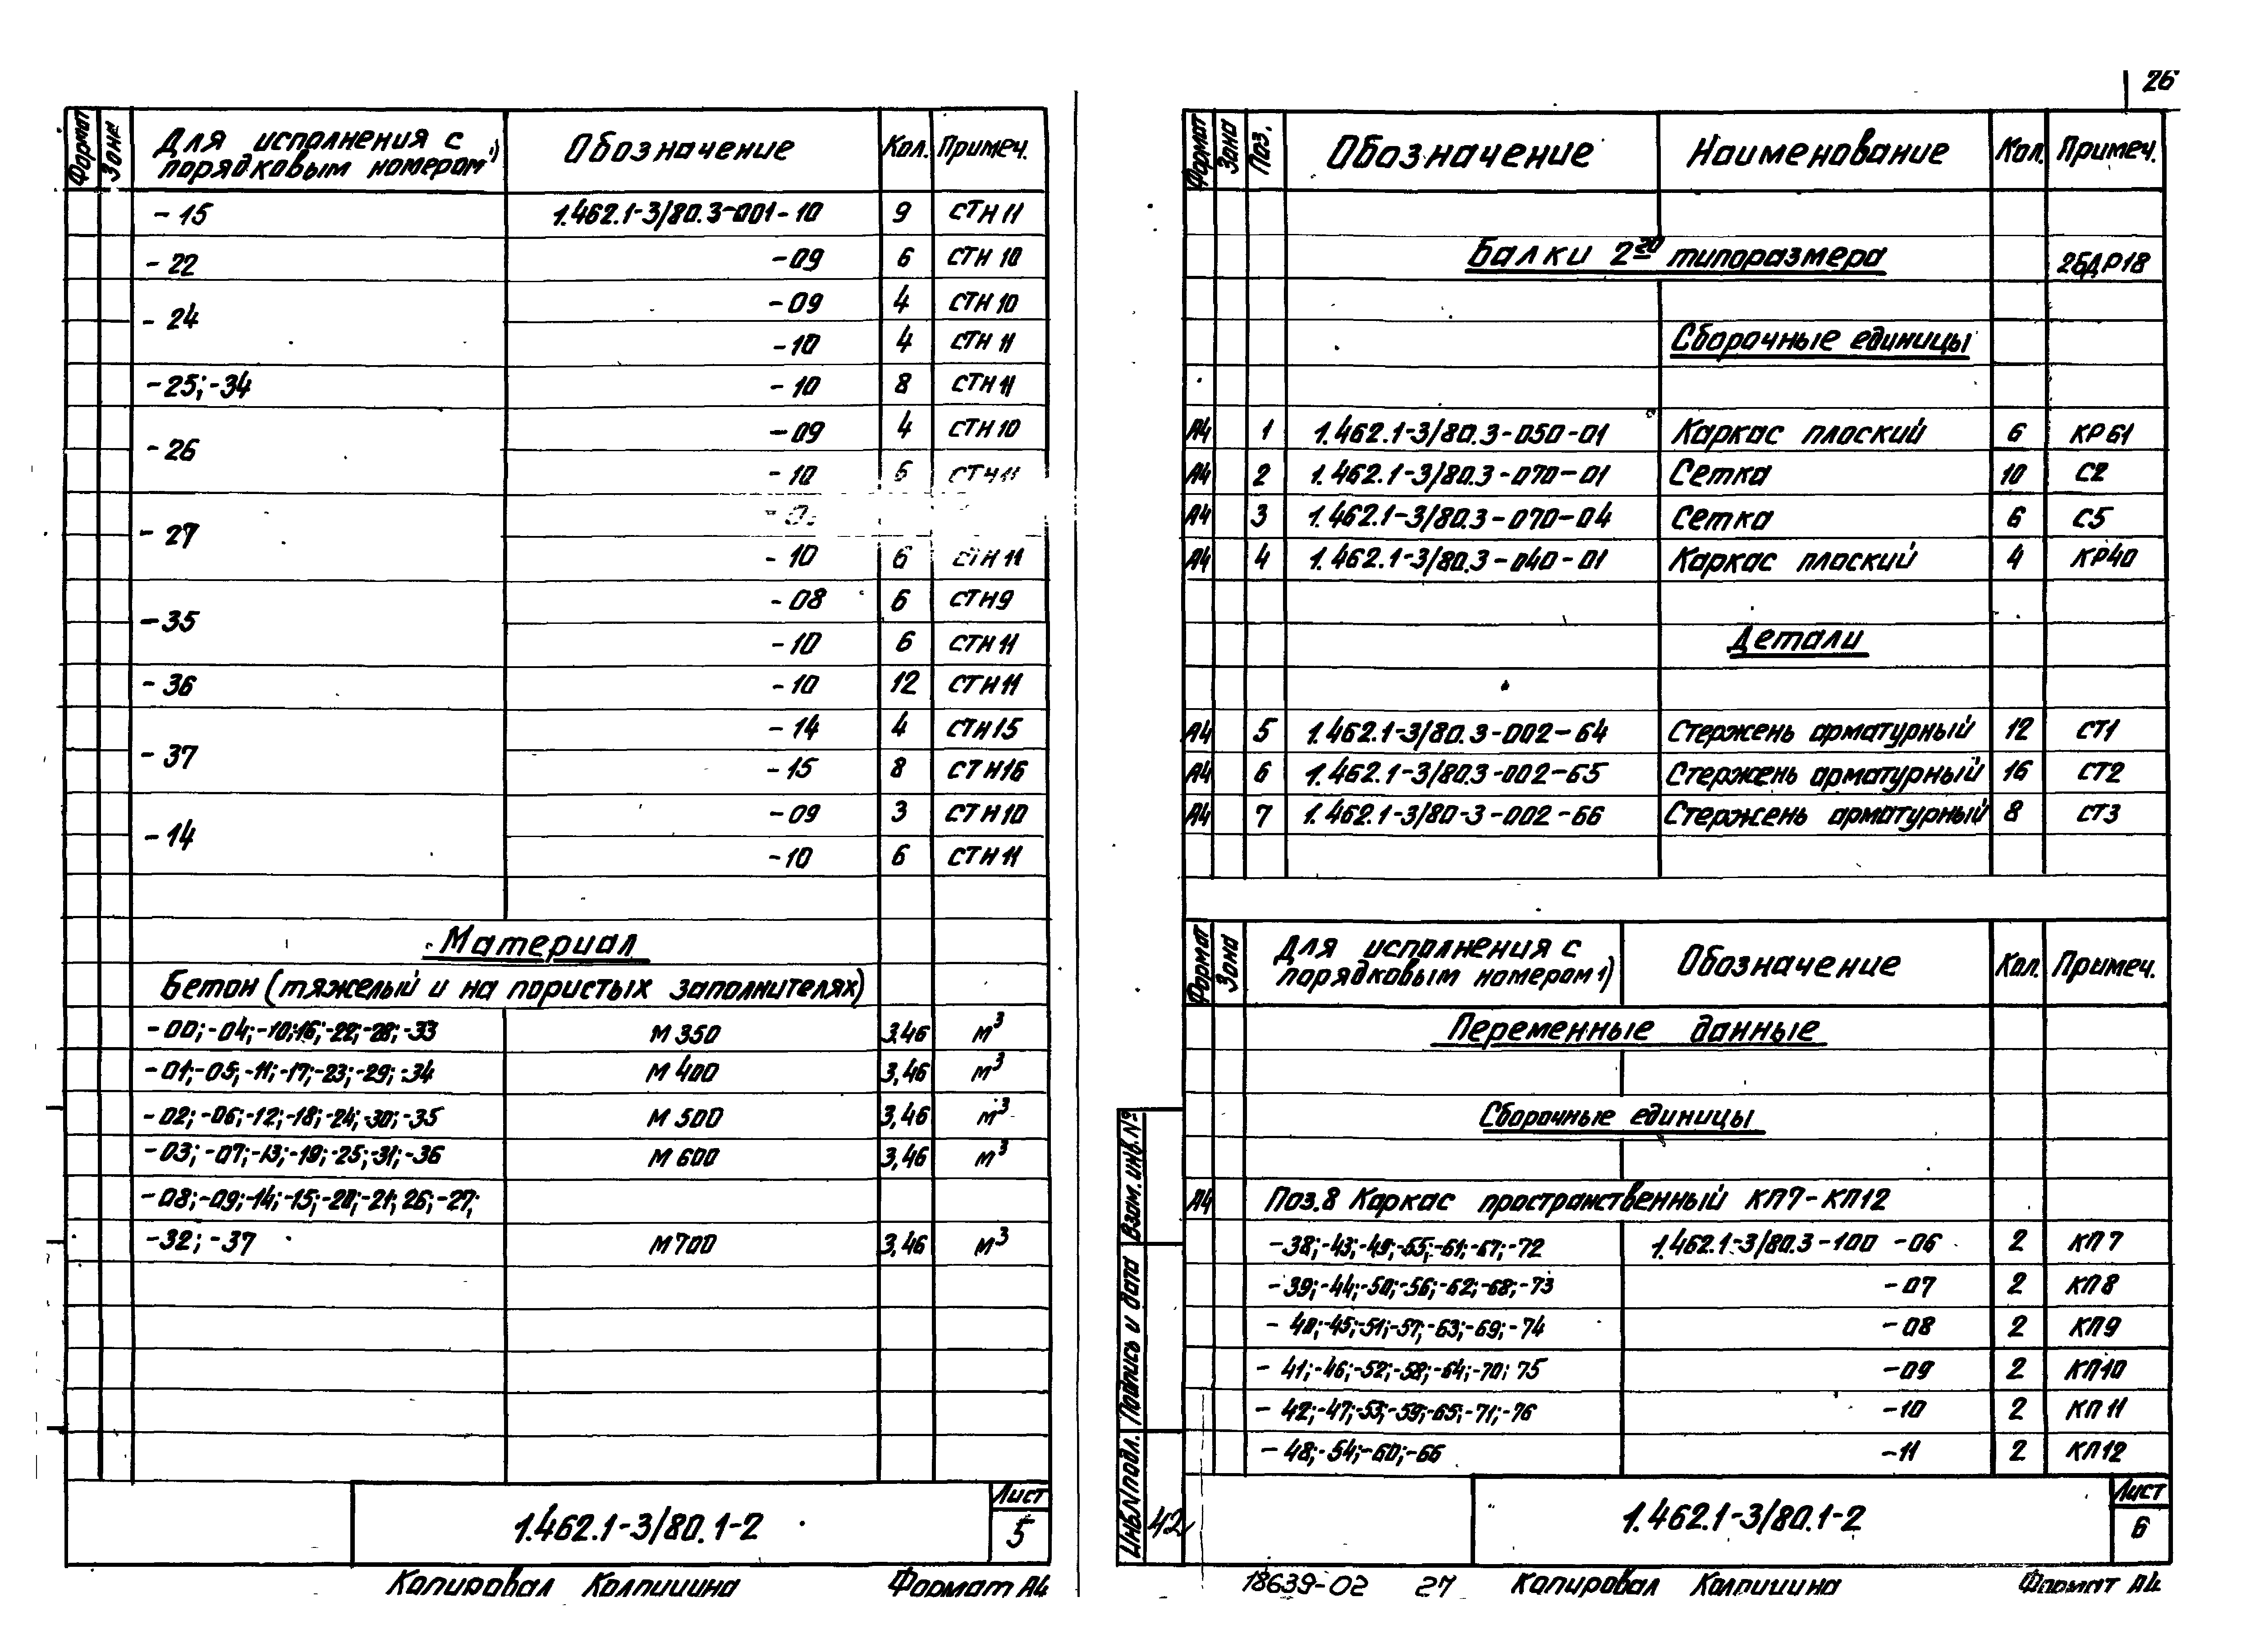 26
Формат Зона Для исполнения с порядковым номером 1) Обозначение Кол. Примеч.
-15 1.462.1-3/80.3-001-10 9 СТН11
-22 -09 6 СТН10
-24 -09 4 СТН10
-10 4 СТН11
-25;-34 -10 8 СТН11
-26 -09 4 СТН10
-10 6 СТН11
-27
-10 6 СТН11
-35 -08 6 СТН9
-10 6 СТН11
-36 -10 12 СТН11
-37 -14 4 СТН15
-15 8 СТН16
-14 -09 3 СТН10
-10 6 СТН11
Материал
Бетон (тяжелый и на пористых заполнителях)
-00;-04;-10;16;-22;-28;-33 М350 3,46 м³
-01;-05;-11;-17;-23;-29;-34 М400 3,46 м³
-02;-06;-12;-18;-24;-30;-35 М500 3,46 м³
-03;-07;-13;-19;-25;-31;-36 М600 3,46 м³
-08;-09;-14;-15;-20;-21;26;-27;
-32;-37 М700 3,46 м³
1.462.1-3/80.1-2 Лист 5
Копировал Колпишина Формат А4
Формат Зона Поз. Обозначение Наименование Кол. Примеч.
Балки 2го типоразмера 2БДР18
Сборочные единицы
А4 1 1.462.1-3/80.3-050-01 Каркас плоский 6 КР61
А4 2 1.462.1-3/80.3-070-01 Сетка 10 С2
А4 3 1.462.1-3/80.3-070-04 Сетка 6 С5
А4 4 1.462.1-3/80.3-040-01 Каркас плоский 4 КР40
Детали
А4 5 1.462.1-3/80.3-002-64 Стержень арматурный 12 СТ1
А4 6 1.462.1-3/80.3-002-65 Стержень арматурный 16 СТ2
А4 7 1.462.1-3/80-3-002-66 Стержень арматурный 8 СТ3
Формат Зона Для исполнения с порядковым номером 1) Обозначение Кол. Примеч.
Переменные данные
Сборочные единицы
А4 Поз.8 Каркас пространственный КП7-КП12
-38;-43;-49;-55;-61;-67;-72 1.462.1-3/80.3-100 -06 2 КП7
-39;-44;-50;-56;-62;-68;-73 -07 2 КП8
-40;-45;-51;-57;-63;-69;-74 -08 2 КП9
-41;-46;-52;-58;-64;-70;75 -09 2 КП10
-42;-47;-53;-59;-65;-71;-76 -10 2 КП11
-48;-54;-60;-66 -11 2 КП12
Инв.N подл. Подпись и дата Взам.инв.№
42
1.462.1-3/80.1-2 Лист 6
18639-02 27 Копировал Колпишина Формат А4